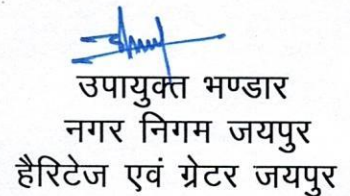 उपायुक्त भण्डार
नगर निगम जयपुर
हैरिटेज एवं ग्रेटर जयपुर